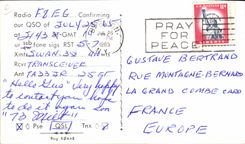 Radio F2EG. Confirming
our QSO of JULY 25 65
at 3:43
fone sigs RST 5-7
Xmtr SWAN-35
Rcvr TRANSCEIVER
Ant TA33JR 25 ft
"Hello Gus" Very happy
to contact you hope
to do it again soon
"73
Pse QSL Tnx
PRAY
FOR
PEACE
8¢
GUSTAVE BERTRAND
RUE MONTAGNE-BERNARD
LA GRAND COMBE GARD
FRANCE
EUROPE